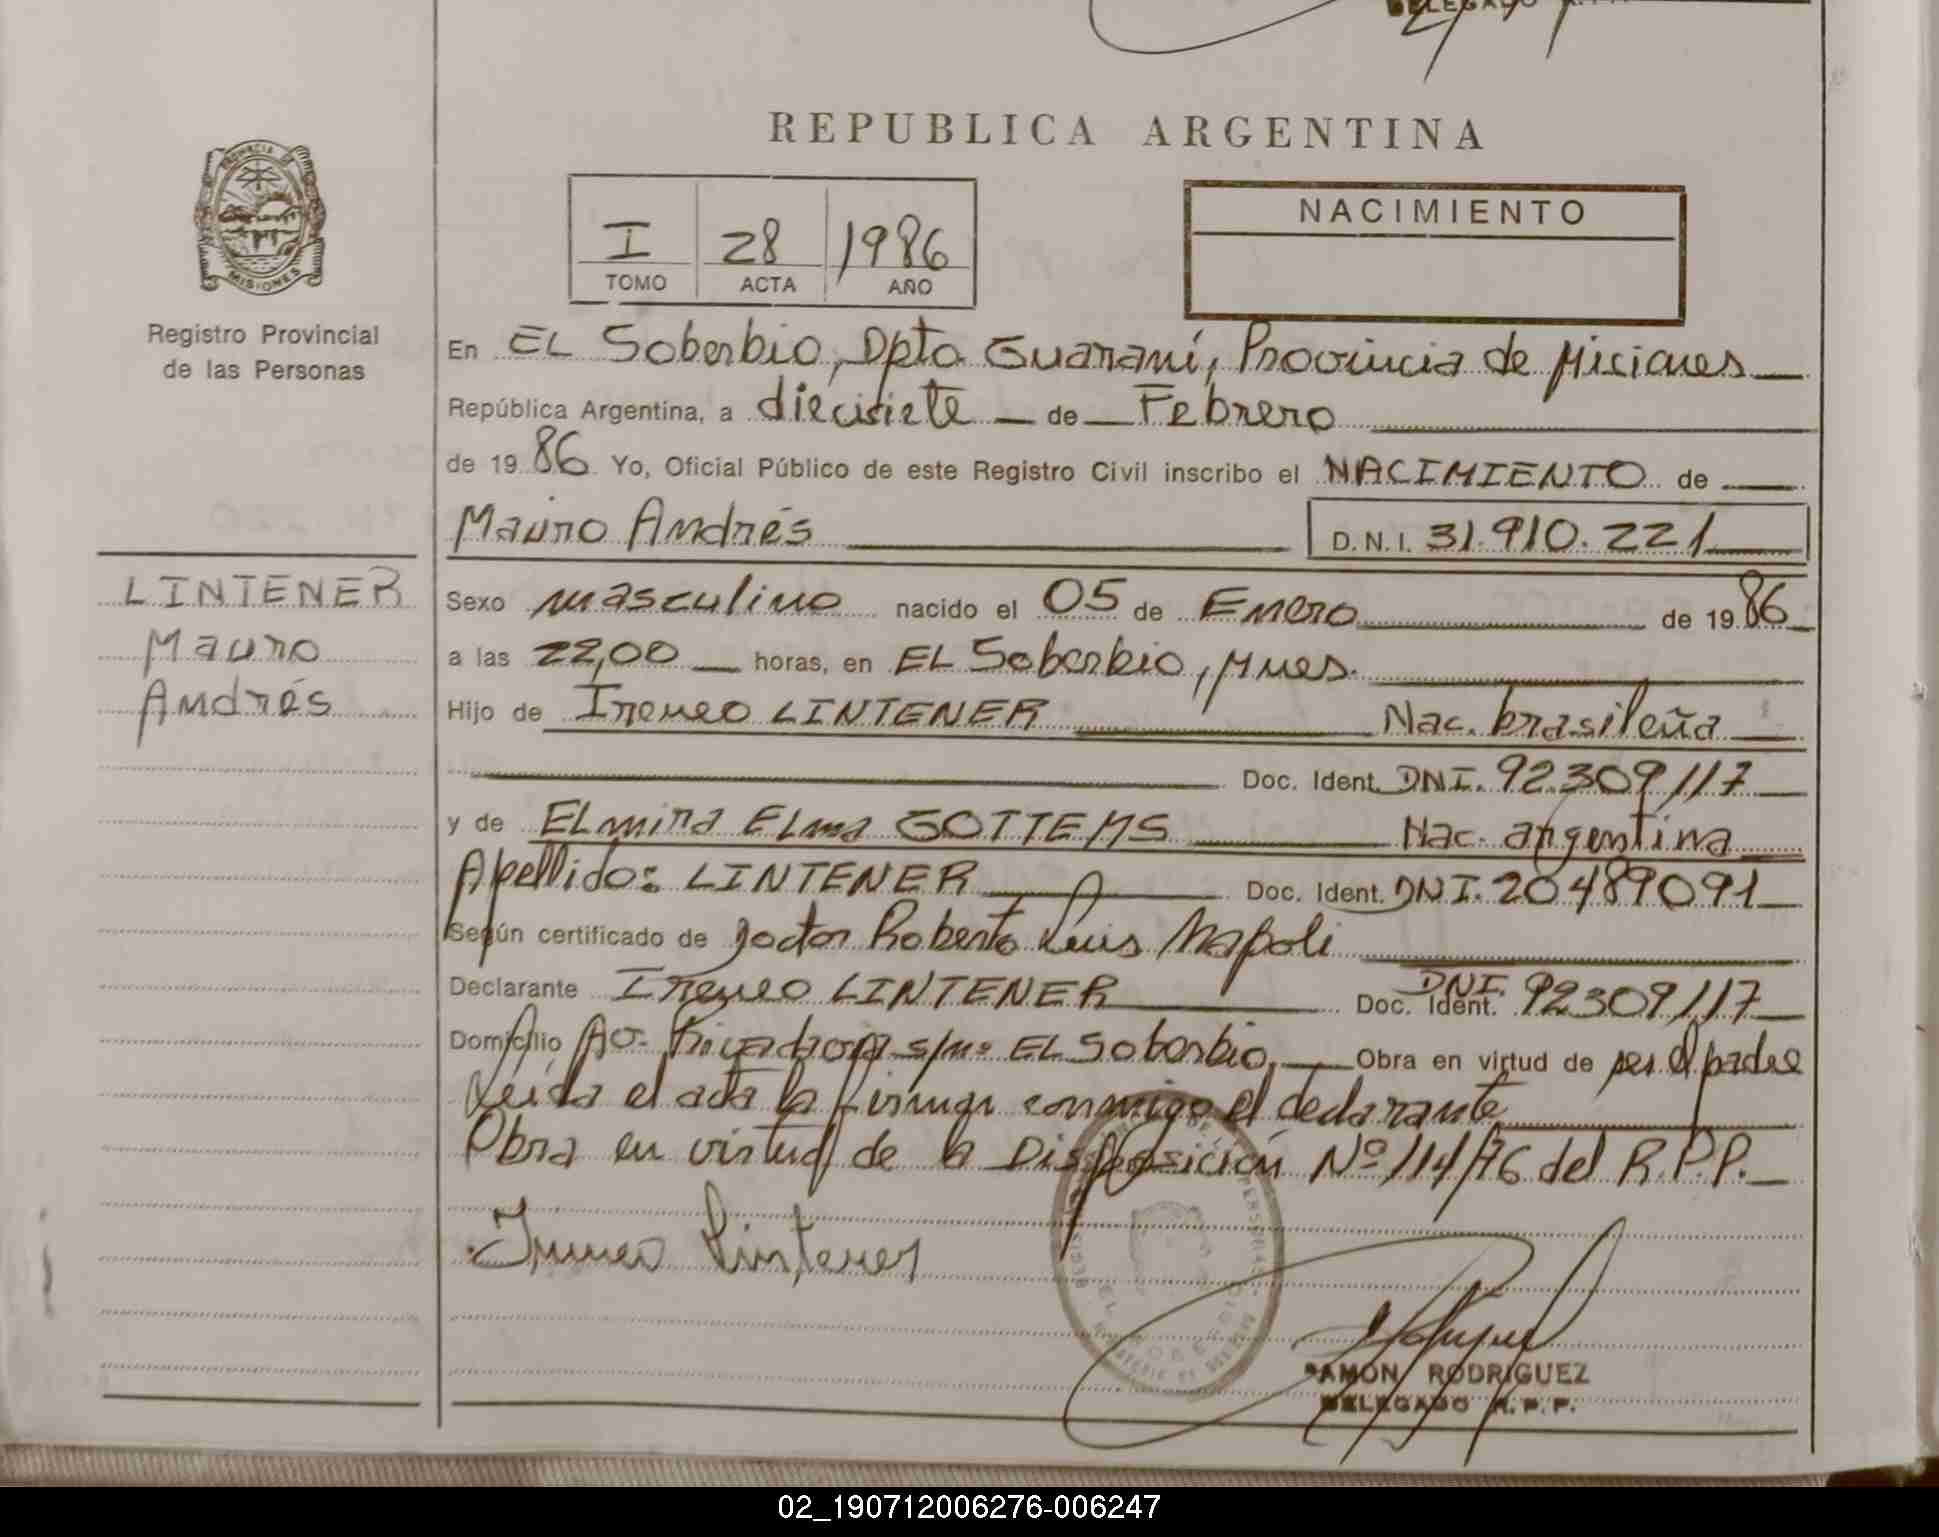 DELEGADO
REPUBLICA ARGENTINA
PROVINCIA DE
MISIONES
Registro Provincial
de las Personas
I 28 1986
TOMO ACTA AÑO
NACIMIENTO
En EL Soberbio, Dpto Guaraní, Provincia de Misiones
República Argentina, a diecisiete de Febrero
de 19 86 Yo, Oficial Público de este Registro Civil inscribo el NACIMIENTO de
Mauro Andrés D.N.I. 31.910.221
LINTENER
Mauro
Andrés
Sexo masculino nacido el 05 de Enero de 19 86
a las 22,00 horas, en EL Soberbio, Mnes.
Hijo de Ireneo LINTENER Nac. brasileña
Doc. Ident. DNI. 92309117
y de ELmira ELma GOTTEMS Nac. argentina
Apellido: LINTENER Doc. Ident. DNI. 20489091
Según certificado de Doctor Roberto Luis Napoli
Declarante Ireneo LINTENER Doc. Ident. DNI. 92309117
Domicilio Av. Rivadavia s/nº EL Soberbio, Obra en virtud de ser el padre
Leída el acta la firman conmigo el declarante
Obra en virtud de la Disposición Nº 114/76 del R.P.P.
Ireneo Lintener
RAMON RODRIGUEZ
DELEGADO R.P.P.
02_190712006276-006247